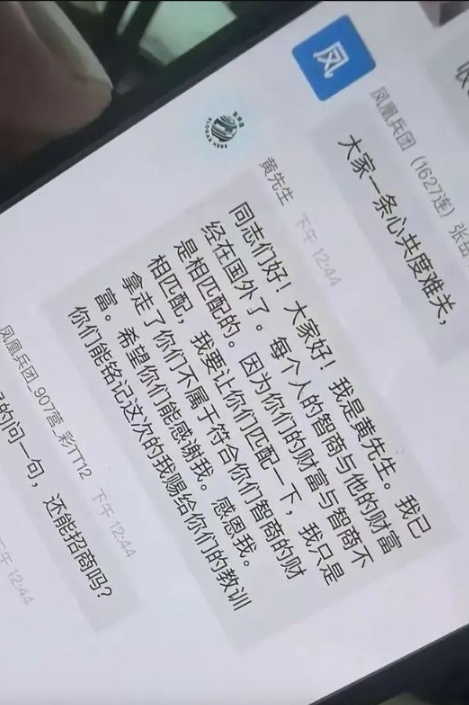 凤
凤凰兵团（1627连）张岳
大家一条心共度难关，
黄先生 下午 12:44
同志们好！大家好！我是黄先生。我已
经在国外了。每个人的智商与他的财富
是相匹配的。因为你们的财富与智商不
相匹配，我要让你们匹配一下，我只是
拿走了你们不属于符合你们智商的财
富。希望你们能感谢我。感恩我。
你们能铭记这次的我赐给你们的教训
凤凰兵团_907营_彩TT12 下午 12:44
的问一句，还能招商吗？
下午 12:44